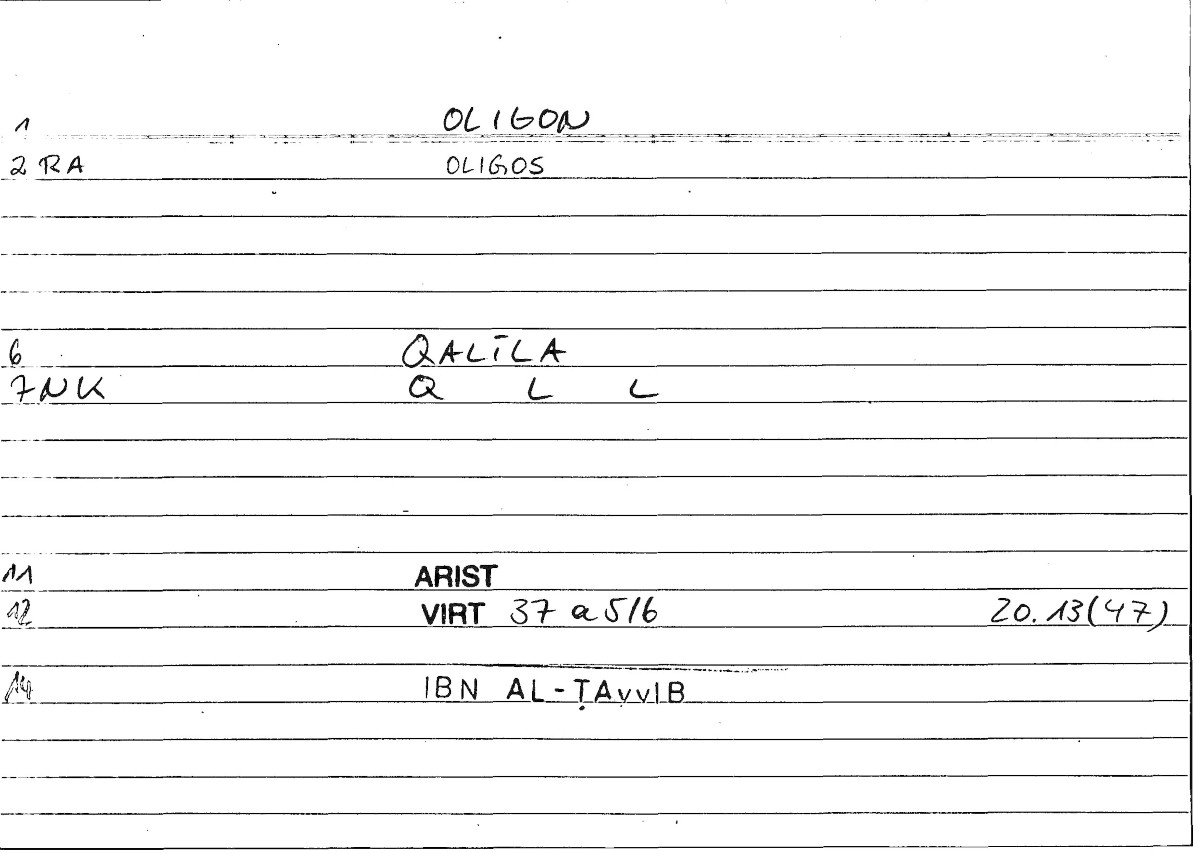 1 OLIGON
2 RA OLIGOS
6 QALĪLA
7NK Q L L
11 ARIST
12 VIRT 37 a 5/6 20.13(47)
14 IBN AL-ṬAyyIB